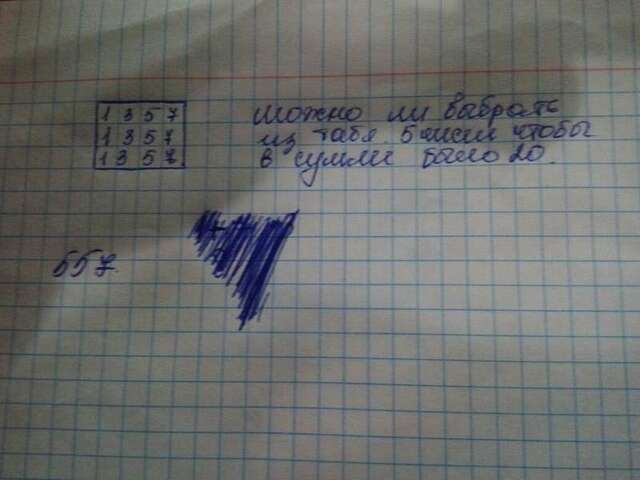 1 3 5 7
1 3 5 7
1 3 5 7
можно ли выбрать
из табл 5 чисел чтобы
в сумме было 20.
557